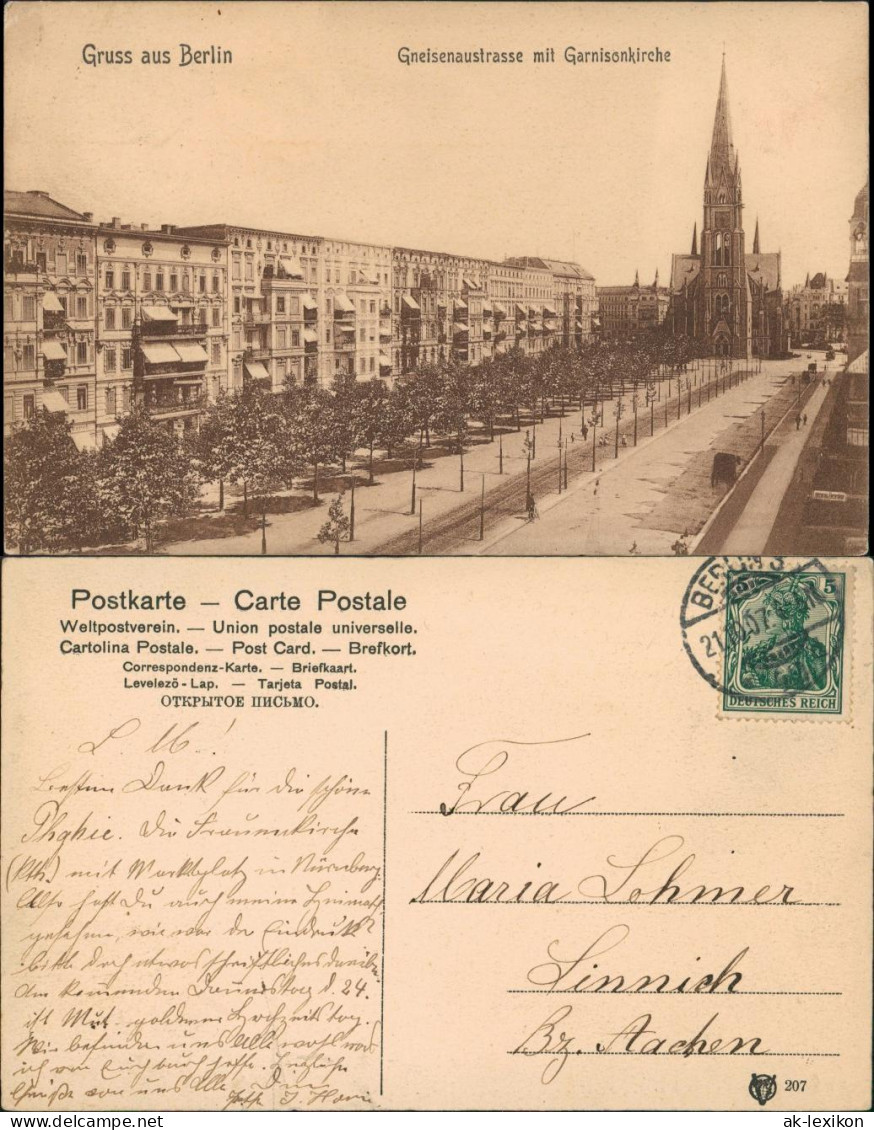 Gruss aus Berlin
Gneisenaustrasse mit Garnisonkirche
Postkarte — Carte Postale
Weltpostverein. — Union postale universelle.
Cartolina Postale. — Post Card. — Brefkort.
Correspondenz-Karte. — Briefkaart.
Levelező-Lap. — Tarjeta Postal.
ОТКРЫТОЕ ПИСЬМО.
BERLIN
5
DEUTSCHES REICH
L. M.!
Besten Dank für die schöne
Die Frauenkirche
(Kth.) mit Marktplatz in Nürnberg.
Also hast Du auch meine Heimat
gesehen, wie war der Eindruck?
bitte doch etwas schriftliches
Am kommenden Donnerstag d. 24.
ist goldene Hochzeitstag.
Wir befinden uns Alle wohl was
ich von Euch auch hoffe. Herzliche
Grüße von uns Alle
Frau
Maria Lohmer
Linnich
Bz. Aachen
207
ak-lexikon
www.delcampe.net